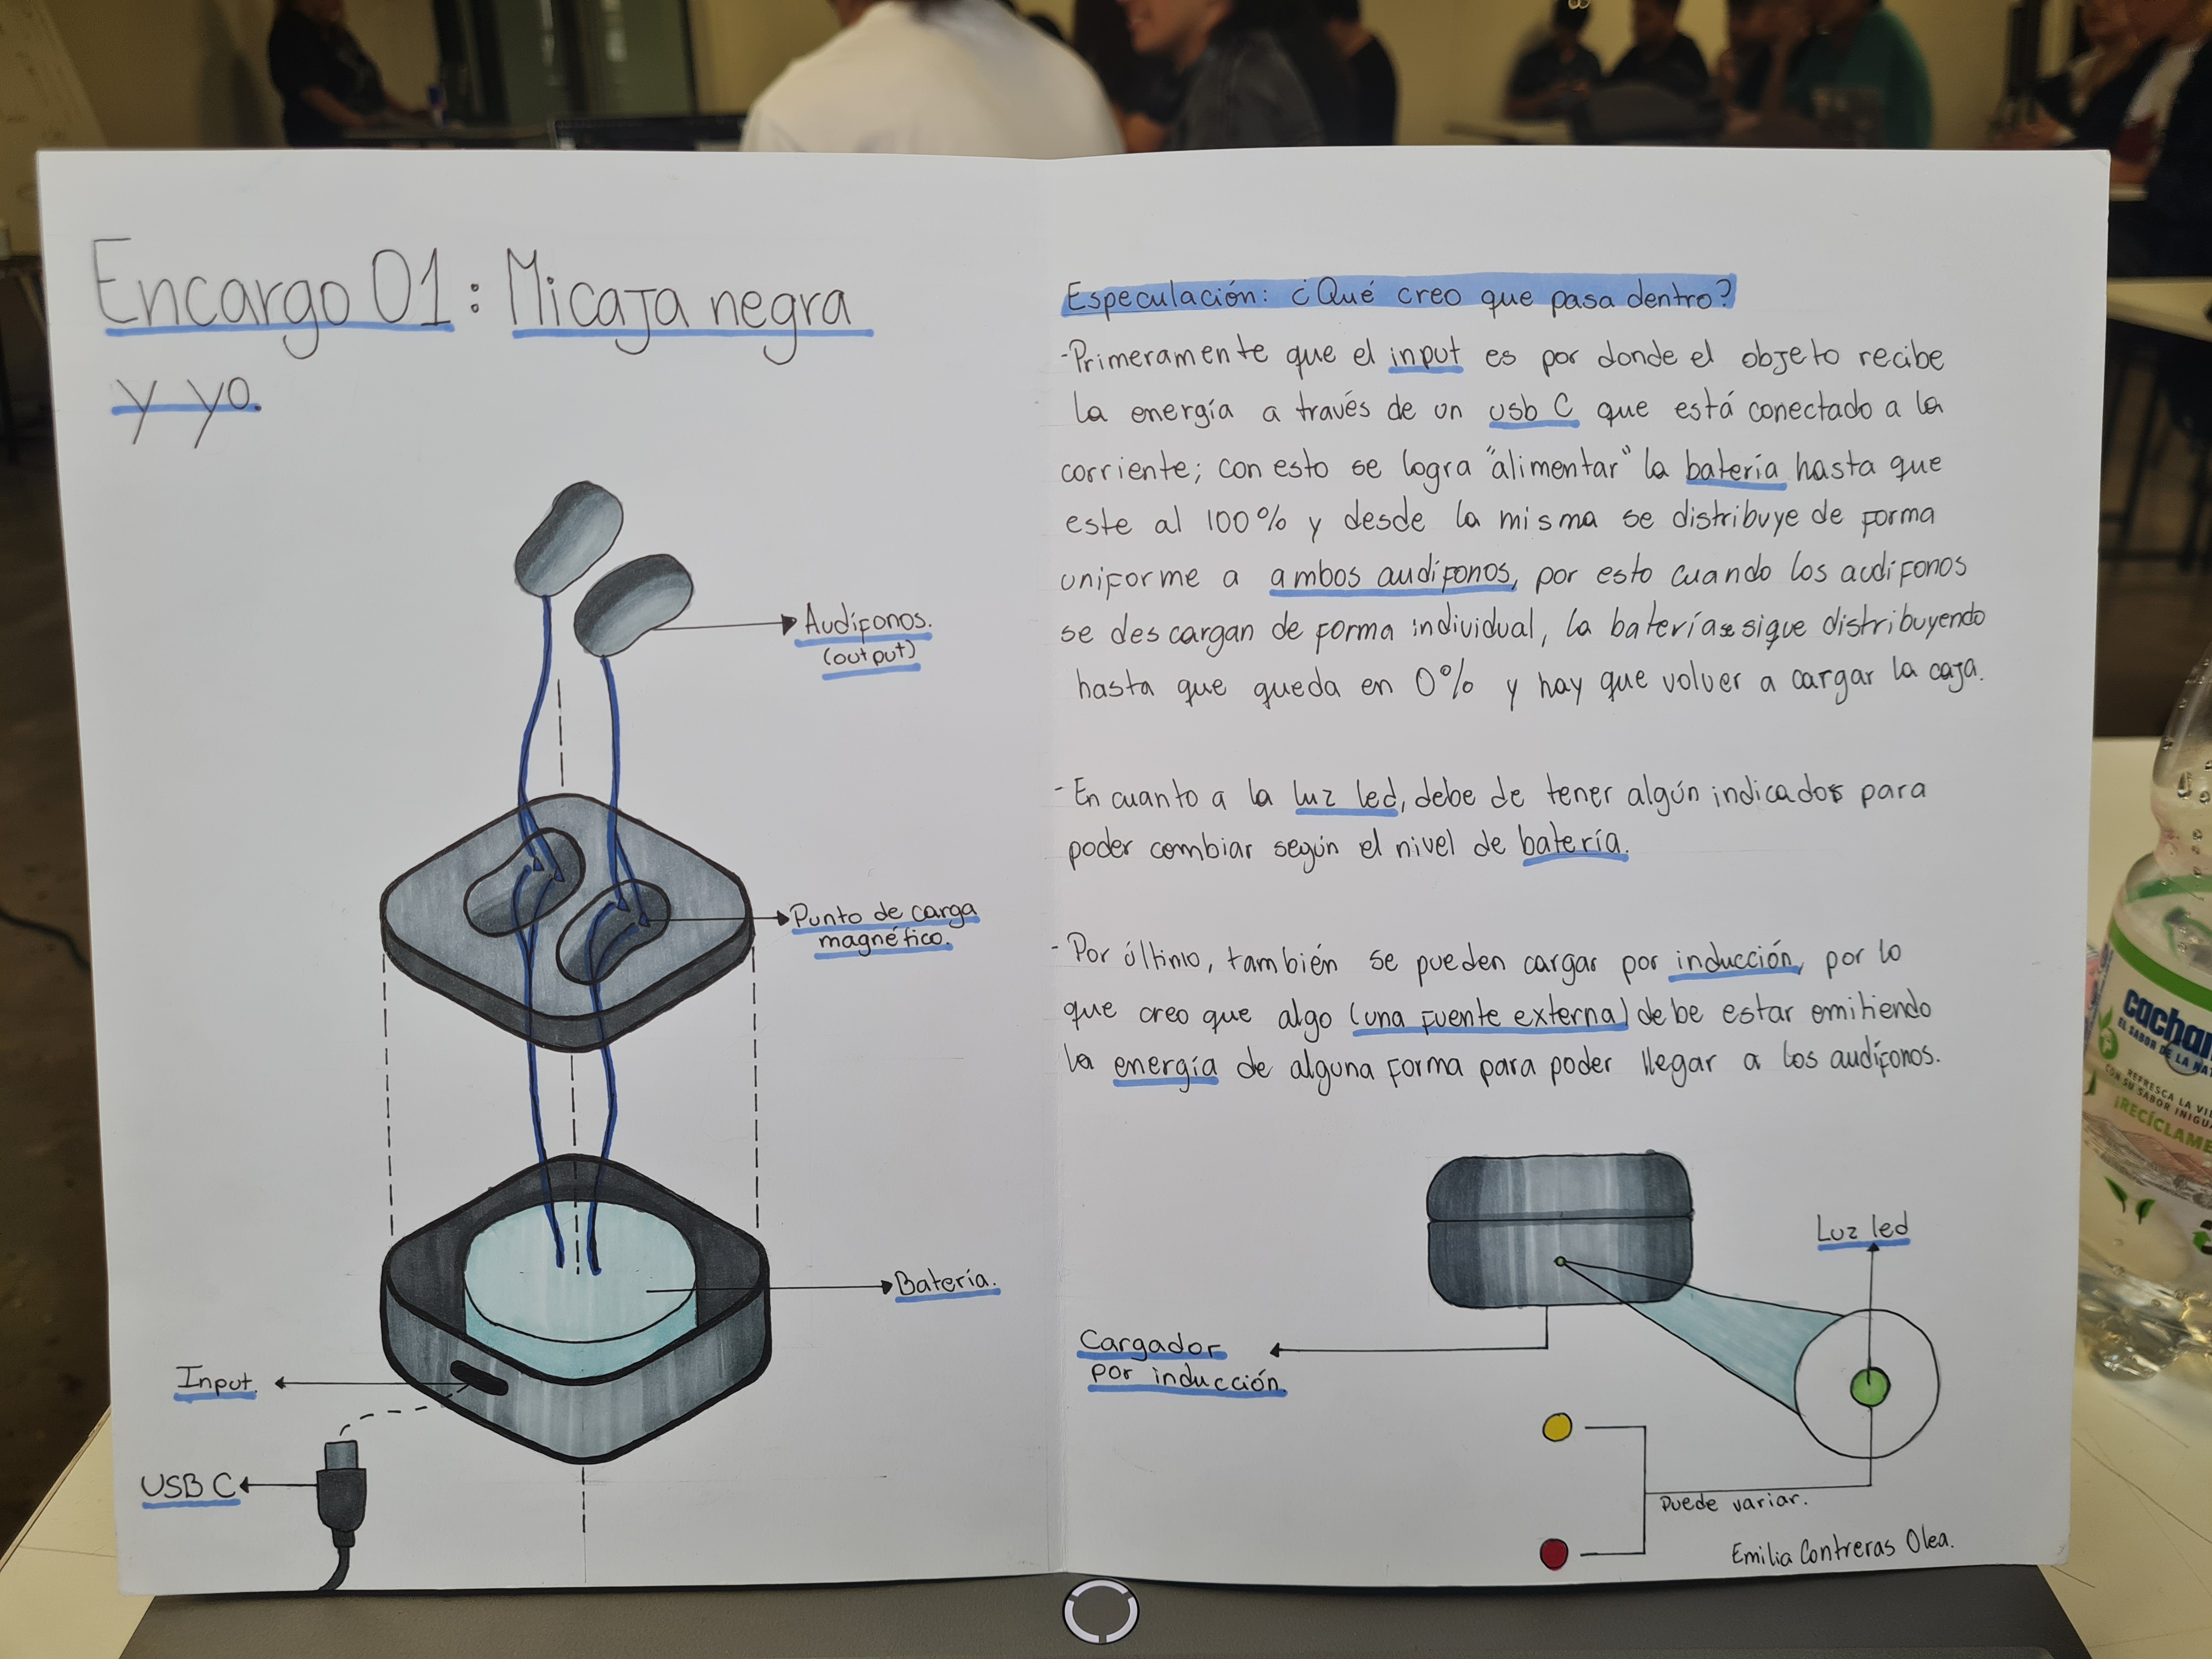 Encargo 01: Mi caja negra
y yo.
Audífonos.
(output)
Punto de carga
magnético.
Batería.
Input.
USB C
Especulación: ¿Qué creo que pasa dentro?
-Primeramente que el input es por donde el objeto recibe
la energía a través de un usb C que está conectado a la
corriente; con esto se logra "alimentar" la batería hasta que
este al 100% y desde la misma se distribuye de forma
uniforme a ambos audífonos, por esto cuando los audífonos
se descargan de forma individual, la batería sigue distribuyendo
hasta que queda en 0% y hay que volver a cargar la caja.
-En cuanto a la luz led, debe de tener algún indicador para
poder cambiar según el nivel de batería.
-Por último, también se pueden cargar por inducción, por lo
que creo que algo (una fuente externa) debe estar emitiendo
la energía de alguna forma para poder llegar a los audífonos.
Luz led
Cargador
por inducción.
Puede variar.
Emilia Contreras Olea.
cachan
EL SABOR DE LA NAT
REFRESCA LA VI
CON SU SABOR INIGUA
¡RECÍCLAME